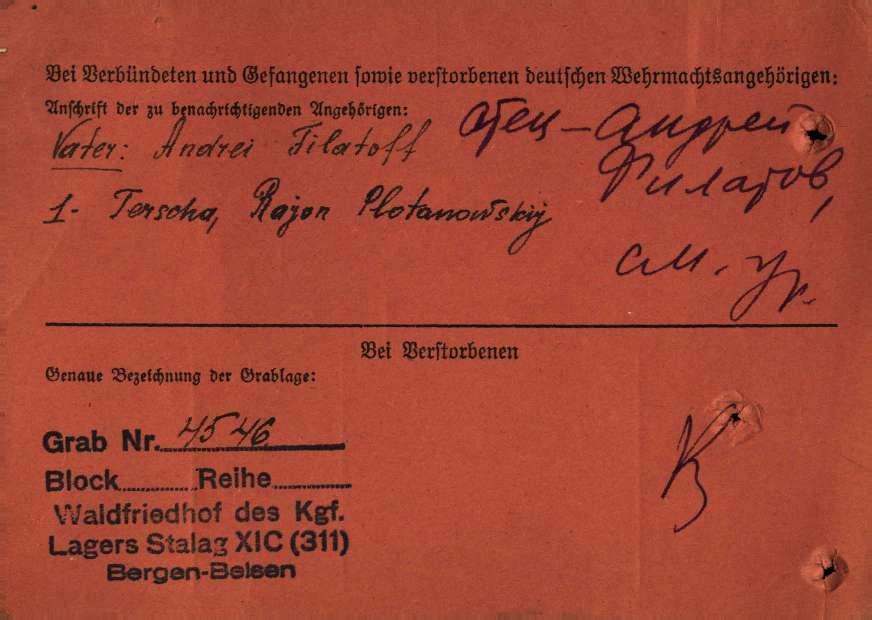 Bei Verbündeten und Gefangenen sowie verstorbenen deutschen Wehrmachtsangehörigen:
Anschrift der zu benachrichtigenden Angehörigen:
Vater: Andrei Filatoff
отец – Андрей
Филатов,
1- Terscha, Rajon Plotanowskij
см. ур.
Bei Verstorbenen
Genaue Bezeichnung der Grablage:
Grab Nr. 4546
Block Reihe
Waldfriedhof des Kgf.
Lagers Stalag XIC (311)
Bergen-Belsen